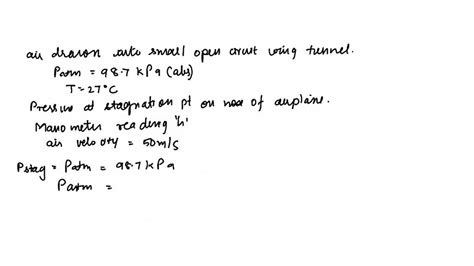 air drawn into small open circuit wing tunnel.
Patm = 98.7 kPa (abs)
T = 27°C
Pressure at stagnation pt on nose of airplane.
Manometer reading 'h'
air velocity = 50m/s
Pstag = Patm = 98.7 kPa
Patm =